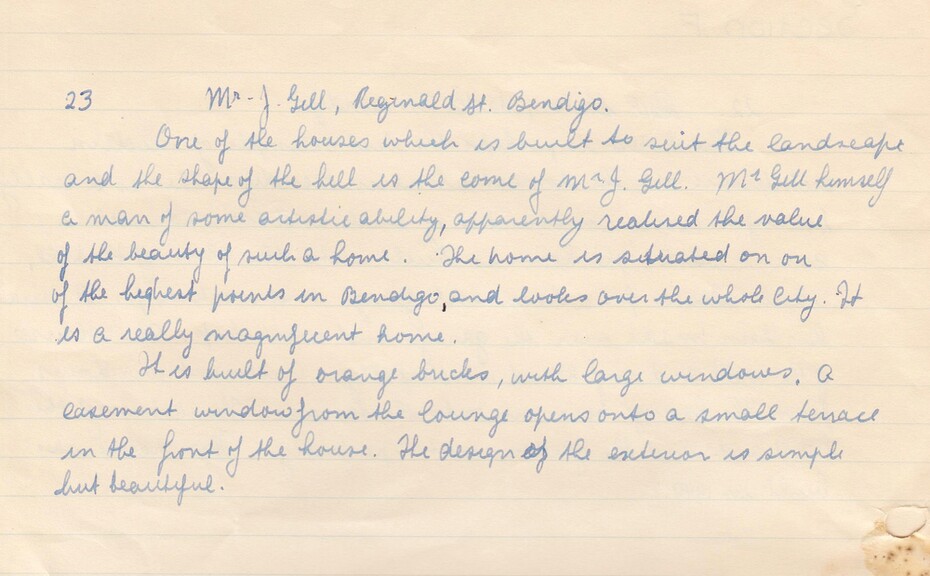 23 Mr. J. Gill, Reginald St. Bendigo.
One of the houses which is built to suit the landscape
and the shape of the hill is the come of Mr J. Gill. Mr Gill himself
a man of some artistic ability, apparently realised the value
of the beauty of such a home. The home is situated on on
of the highest points in Bendigo, and looks over the whole City. It
is a really magnificent home.
It is built of orange bricks, with large windows. A
casement window from the lounge opens onto a small terrace
in the front of the house. The design of the exterior is simple
but beautiful.